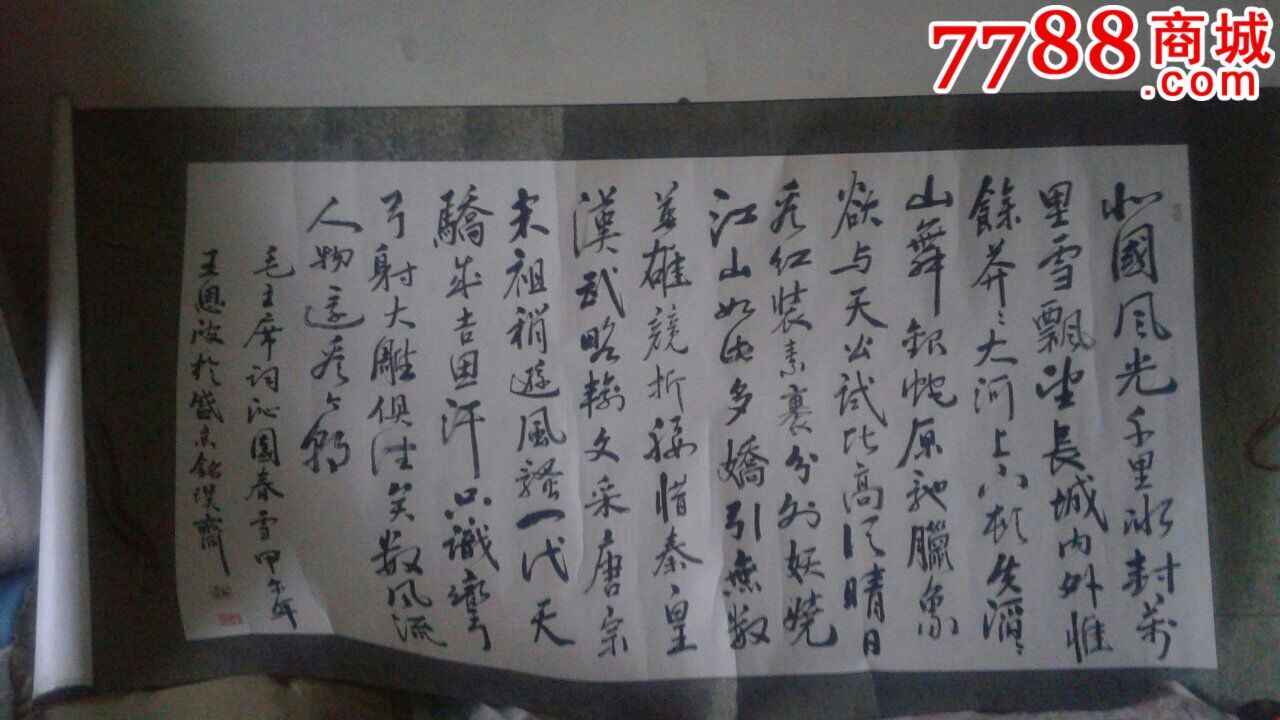 7788商城
.com
北國风光千里冰封萬
里雪飄望長城内外惟
餘莽〻大河上下頓失滔〻
山舞銀蛇原馳臘象
欲与天公試比高須晴日
看红裝素裹分外妖嬈
江山如此多嬌引無数
英雄競折腰惜秦皇
漢武略輸文采唐宗
宋祖稍遜風騷一代天
驕成吉思汗只識彎
弓射大雕俱往矣数风流
人物還看今朝
毛主席词沁園春雪甲午年
王恩波於盛京銘璞齋